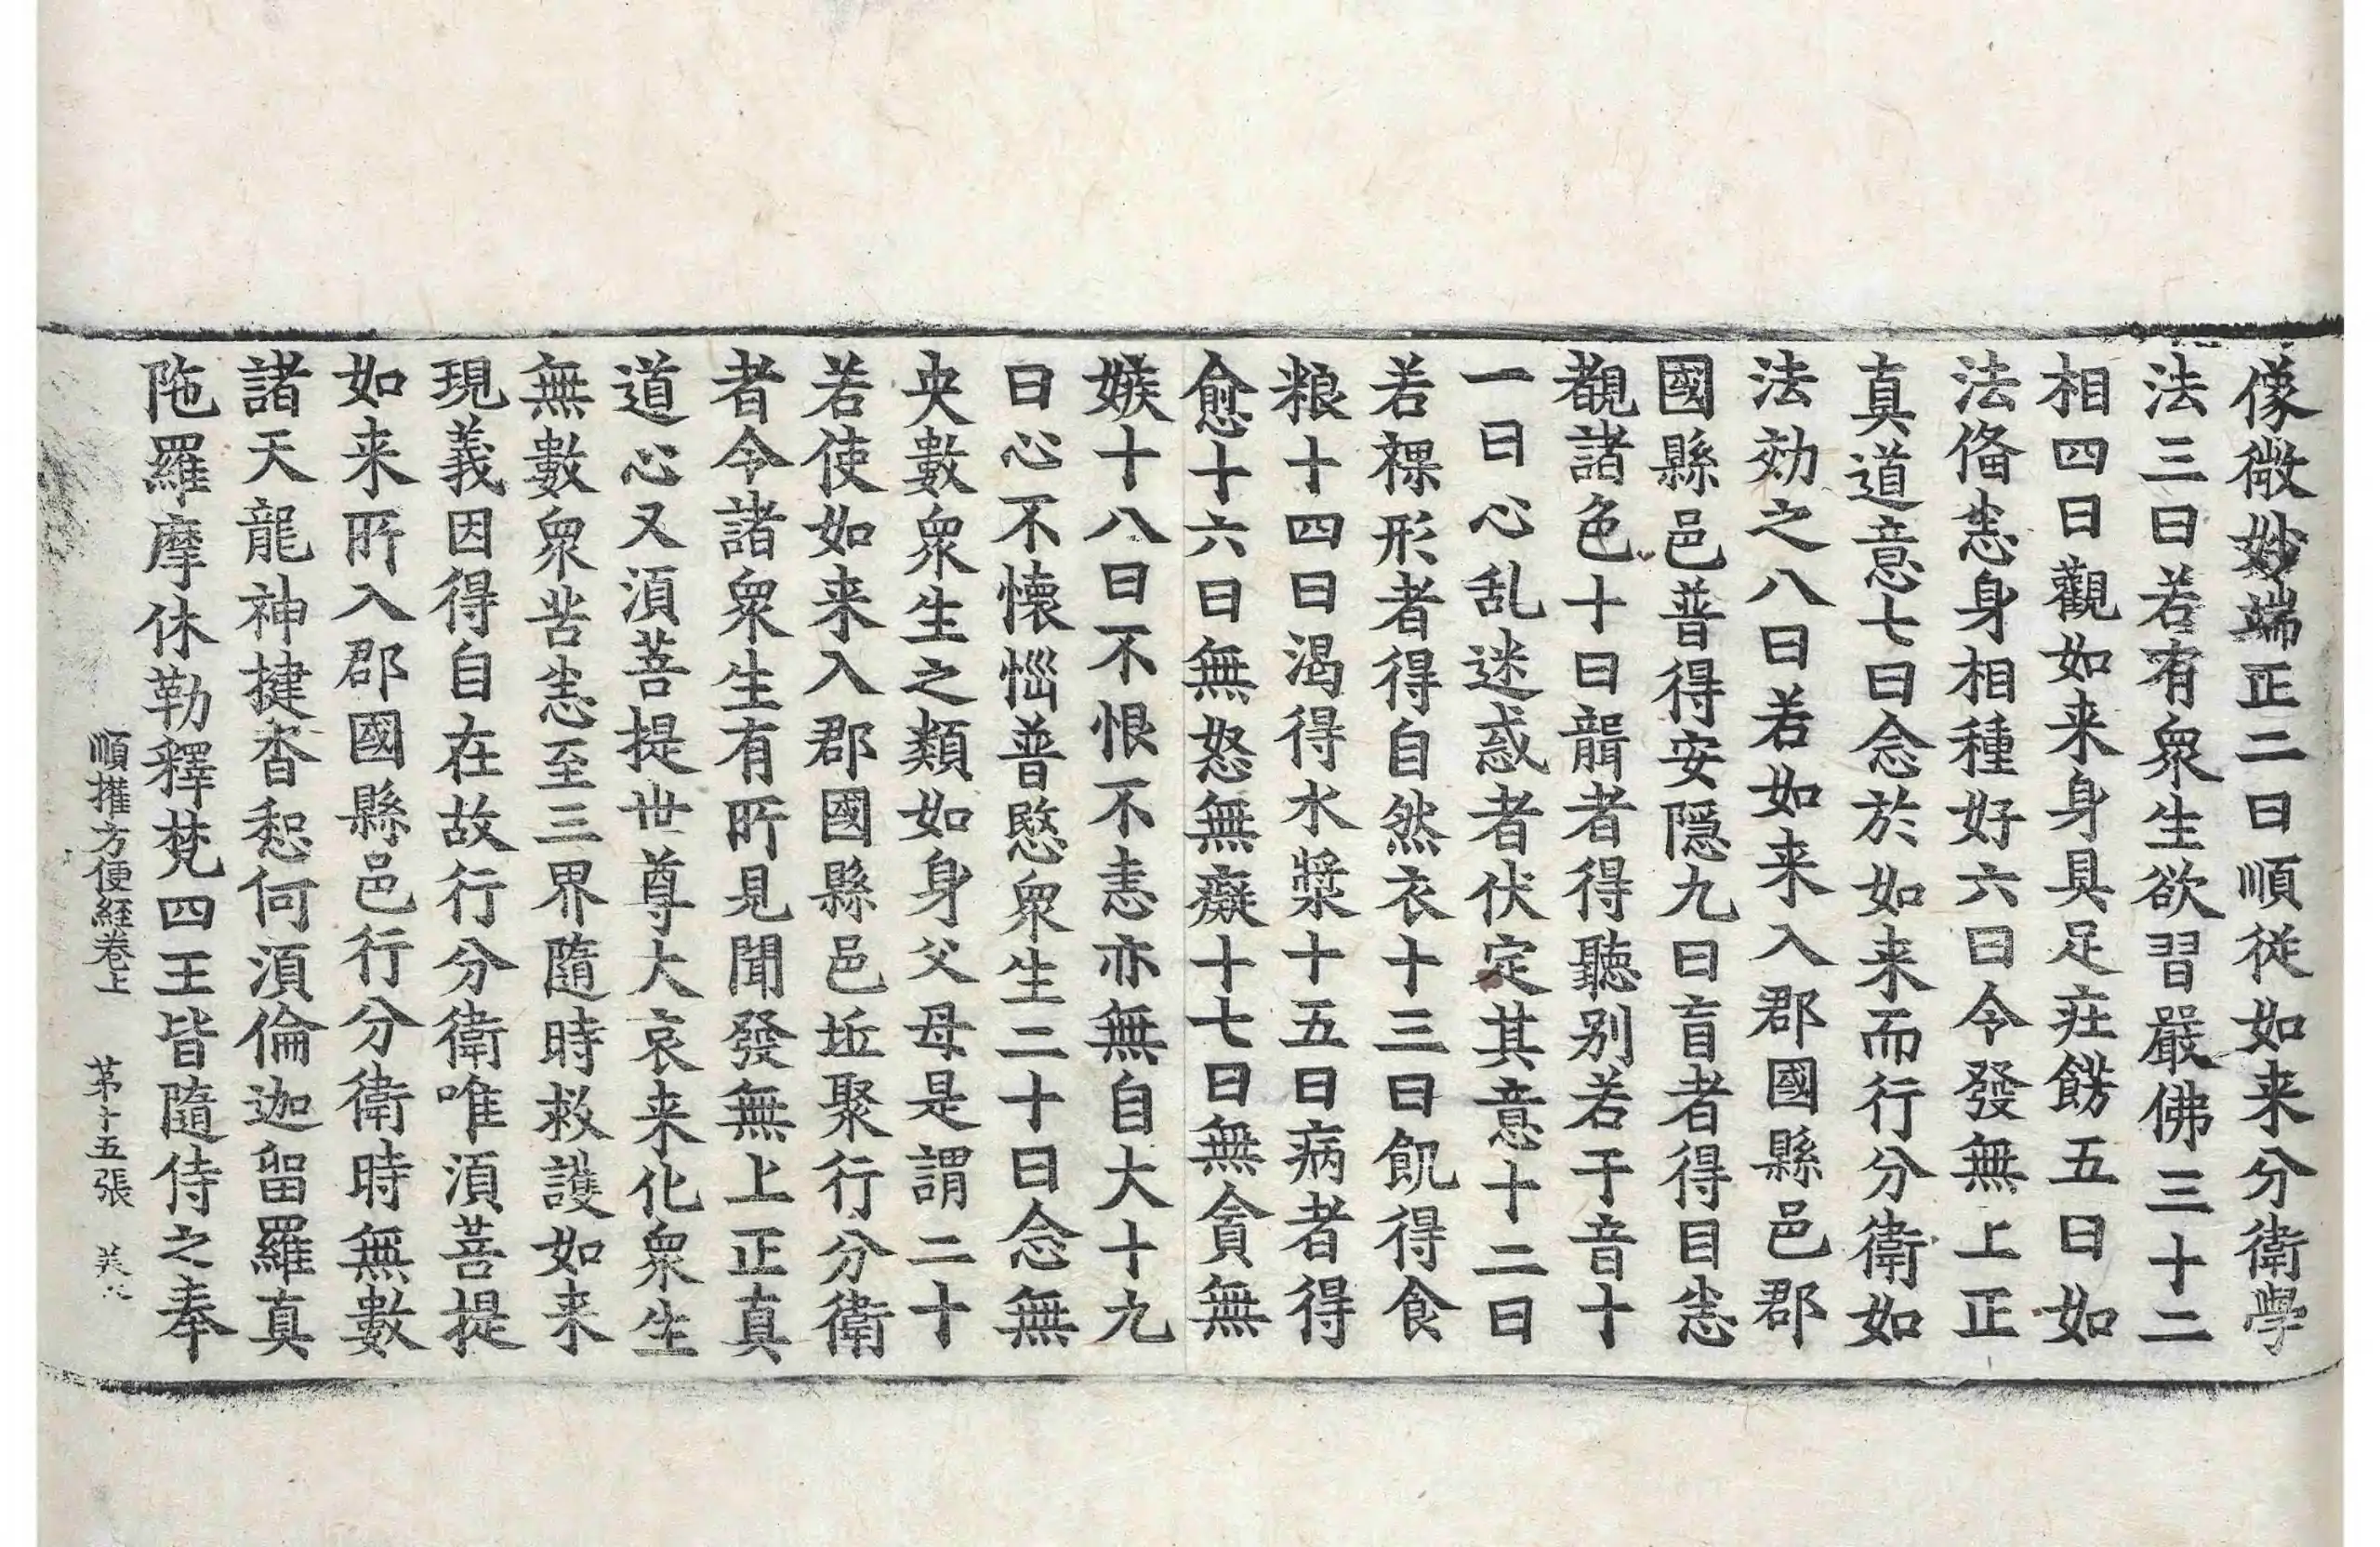 像微妙端正二曰順従如来分衛學
法三曰若有衆生欲習嚴佛三十二
相四曰觀如来身具足莊餝五曰如
法俻恙身相種好六曰令發無上正
真道意七曰念於如来而行分衛如
法効之八曰若如来入郡國縣邑郡
國縣邑普得安隠九曰盲者得目恙
覩諸色十曰聾者得聽别若干音十
一曰心乱迷惑者伏定其意十二曰
若裸形者得自然衣十三曰飢得食
粮十四曰渴得水漿十五曰病者得
愈十六曰無怒無癡十七曰無貪無
嫉十八曰不恨不恚亦無自大十九
曰心不懐惱普愍衆生二十曰念無
央數衆生之類如身父母是謂二十
若使如来入郡國縣邑丘聚行分衛
者令諸衆生有所見聞發無上正真
道心又湏菩提世尊大哀来化衆生
無數衆苦恙至三界隨時救護如来
現義因得自在故行分衛唯湏菩提
如来所入郡國縣邑行分衛時無數
諸天龍神揵沓惒何湏倫迦留羅真
陁羅摩休勒釋梵四王皆隨侍之奉
順權方便経卷上 苐十五張